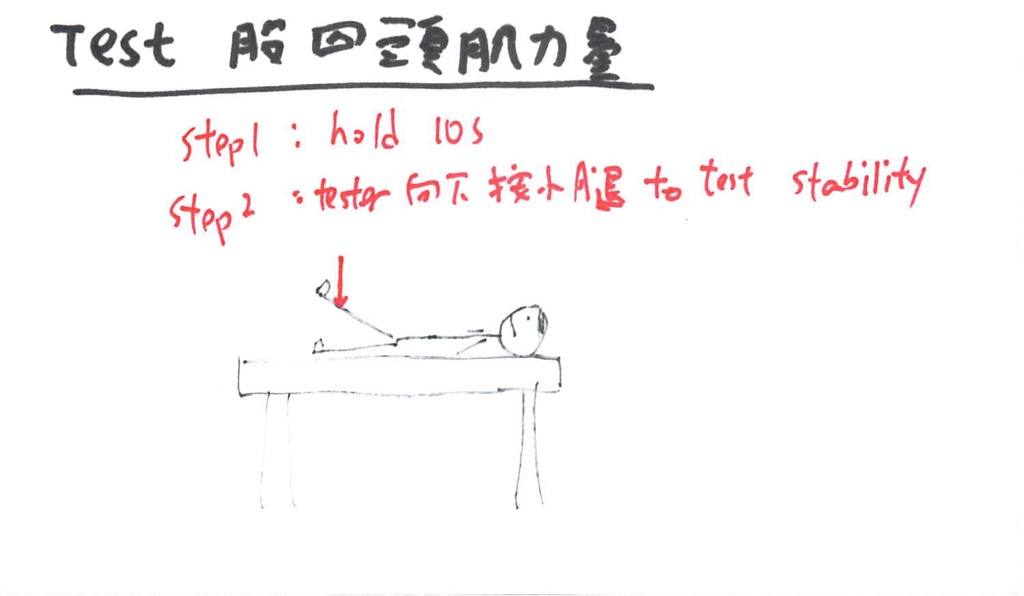 Test 股四頭肌力量
step1 : hold 10s
step2 : tester 向下按小腿 to test stability